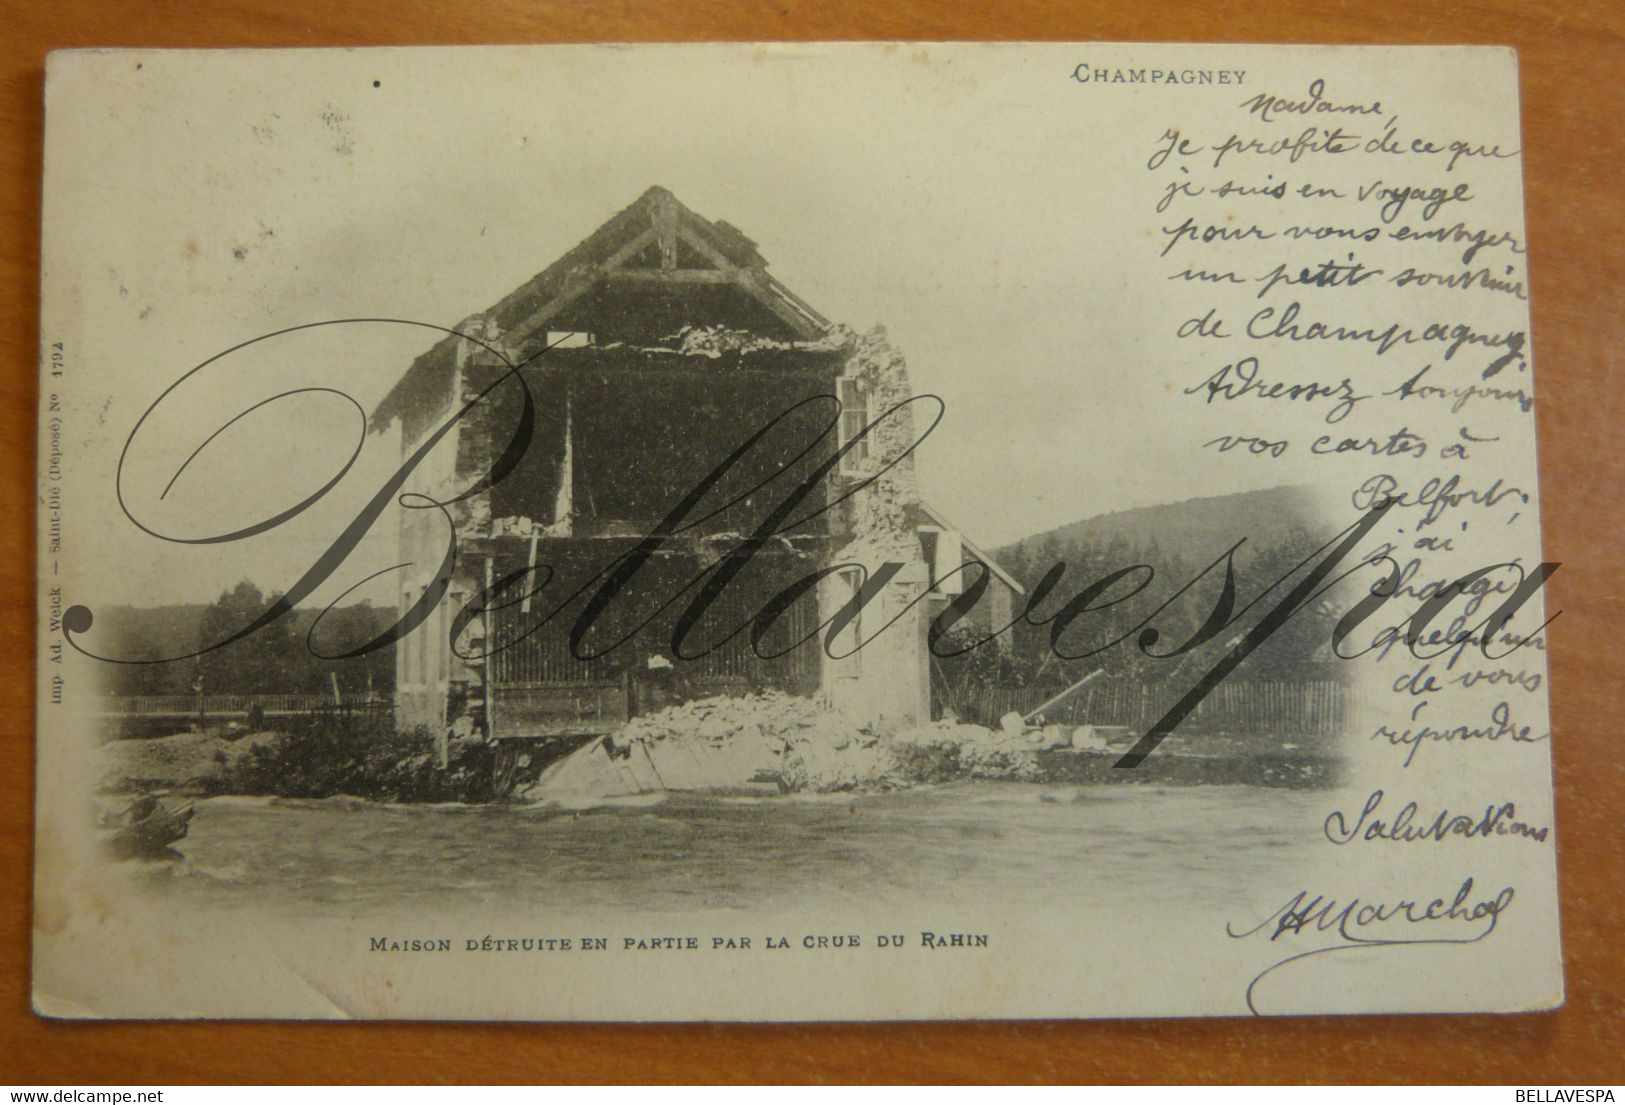 CHAMPAGNEY
Madame,
Je profite de ce que
je suis en voyage
pour vous envoyer
un petit souvenir
de Champagney
Adressez toujours
vos cartes à
Belfort;
j'ai
chargé
quelqu'un
de vous
répondre
Salutations
Marchal
Imp. Ad. Weick — Saint-Dié (Déposé) No 1792
MAISON DÉTRUITE EN PARTIE PAR LA CRUE DU RAHIN
Bellavespa
delcampe.net
BELLAVESPA